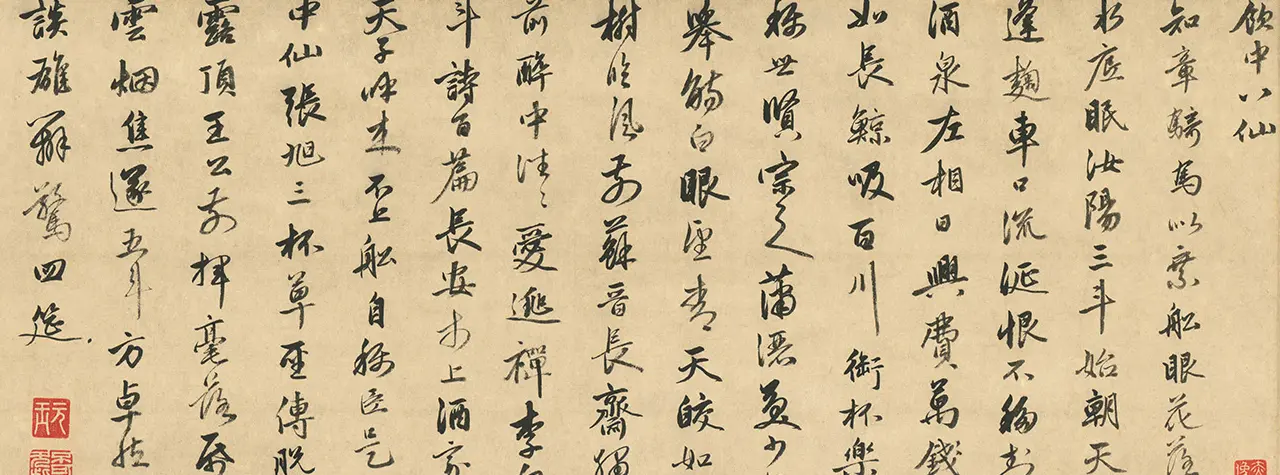 飲中八仙
知章騎馬似乘船眼花落
水底眠汝陽三斗始朝天
逢麴車口流涎恨不移封
酒泉左相日興費萬錢
如長鯨吸百川銜杯樂
稱世賢宗之瀟灑美少
舉觴白眼望青天皎如
樹臨風前蘇晉長齋繡
前醉中往〻愛逃禪李白
斗詩百篇長安市上酒家
天子呼來不上船自稱臣是
中仙張旭三杯草聖傳脫
露頂王公前揮毫落紙
雲烟焦遂五斗方卓然
談雄辯驚四筵